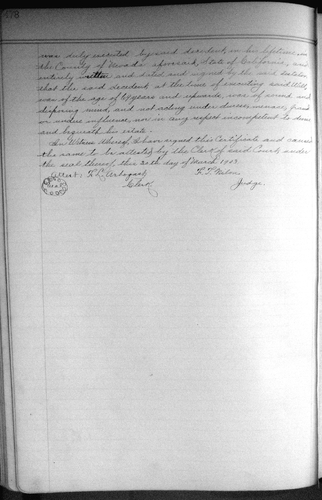 478
was duly executed by said decedent in his lifetime, in
the County of Nevada aforesaid, State of California, and
entirely written and dated and signed by the said testator
that the said decedent at the time of executing said Will,
was of the age of 18 years and upwards, was of sound and
disposing mind, and not acting under duress, menace, fraud
or undue influence, nor in any respect incompetent to devise
and bequeath his estate.
In Witness Whereof, I have signed this Certificate and caused
the same to be attested by the Clerk of said Court, under
the seal thereof, this 20th day of March 1903.
Attest: F. L. Arbogast, F. T. Nilon
Seal Clerk. Judge.